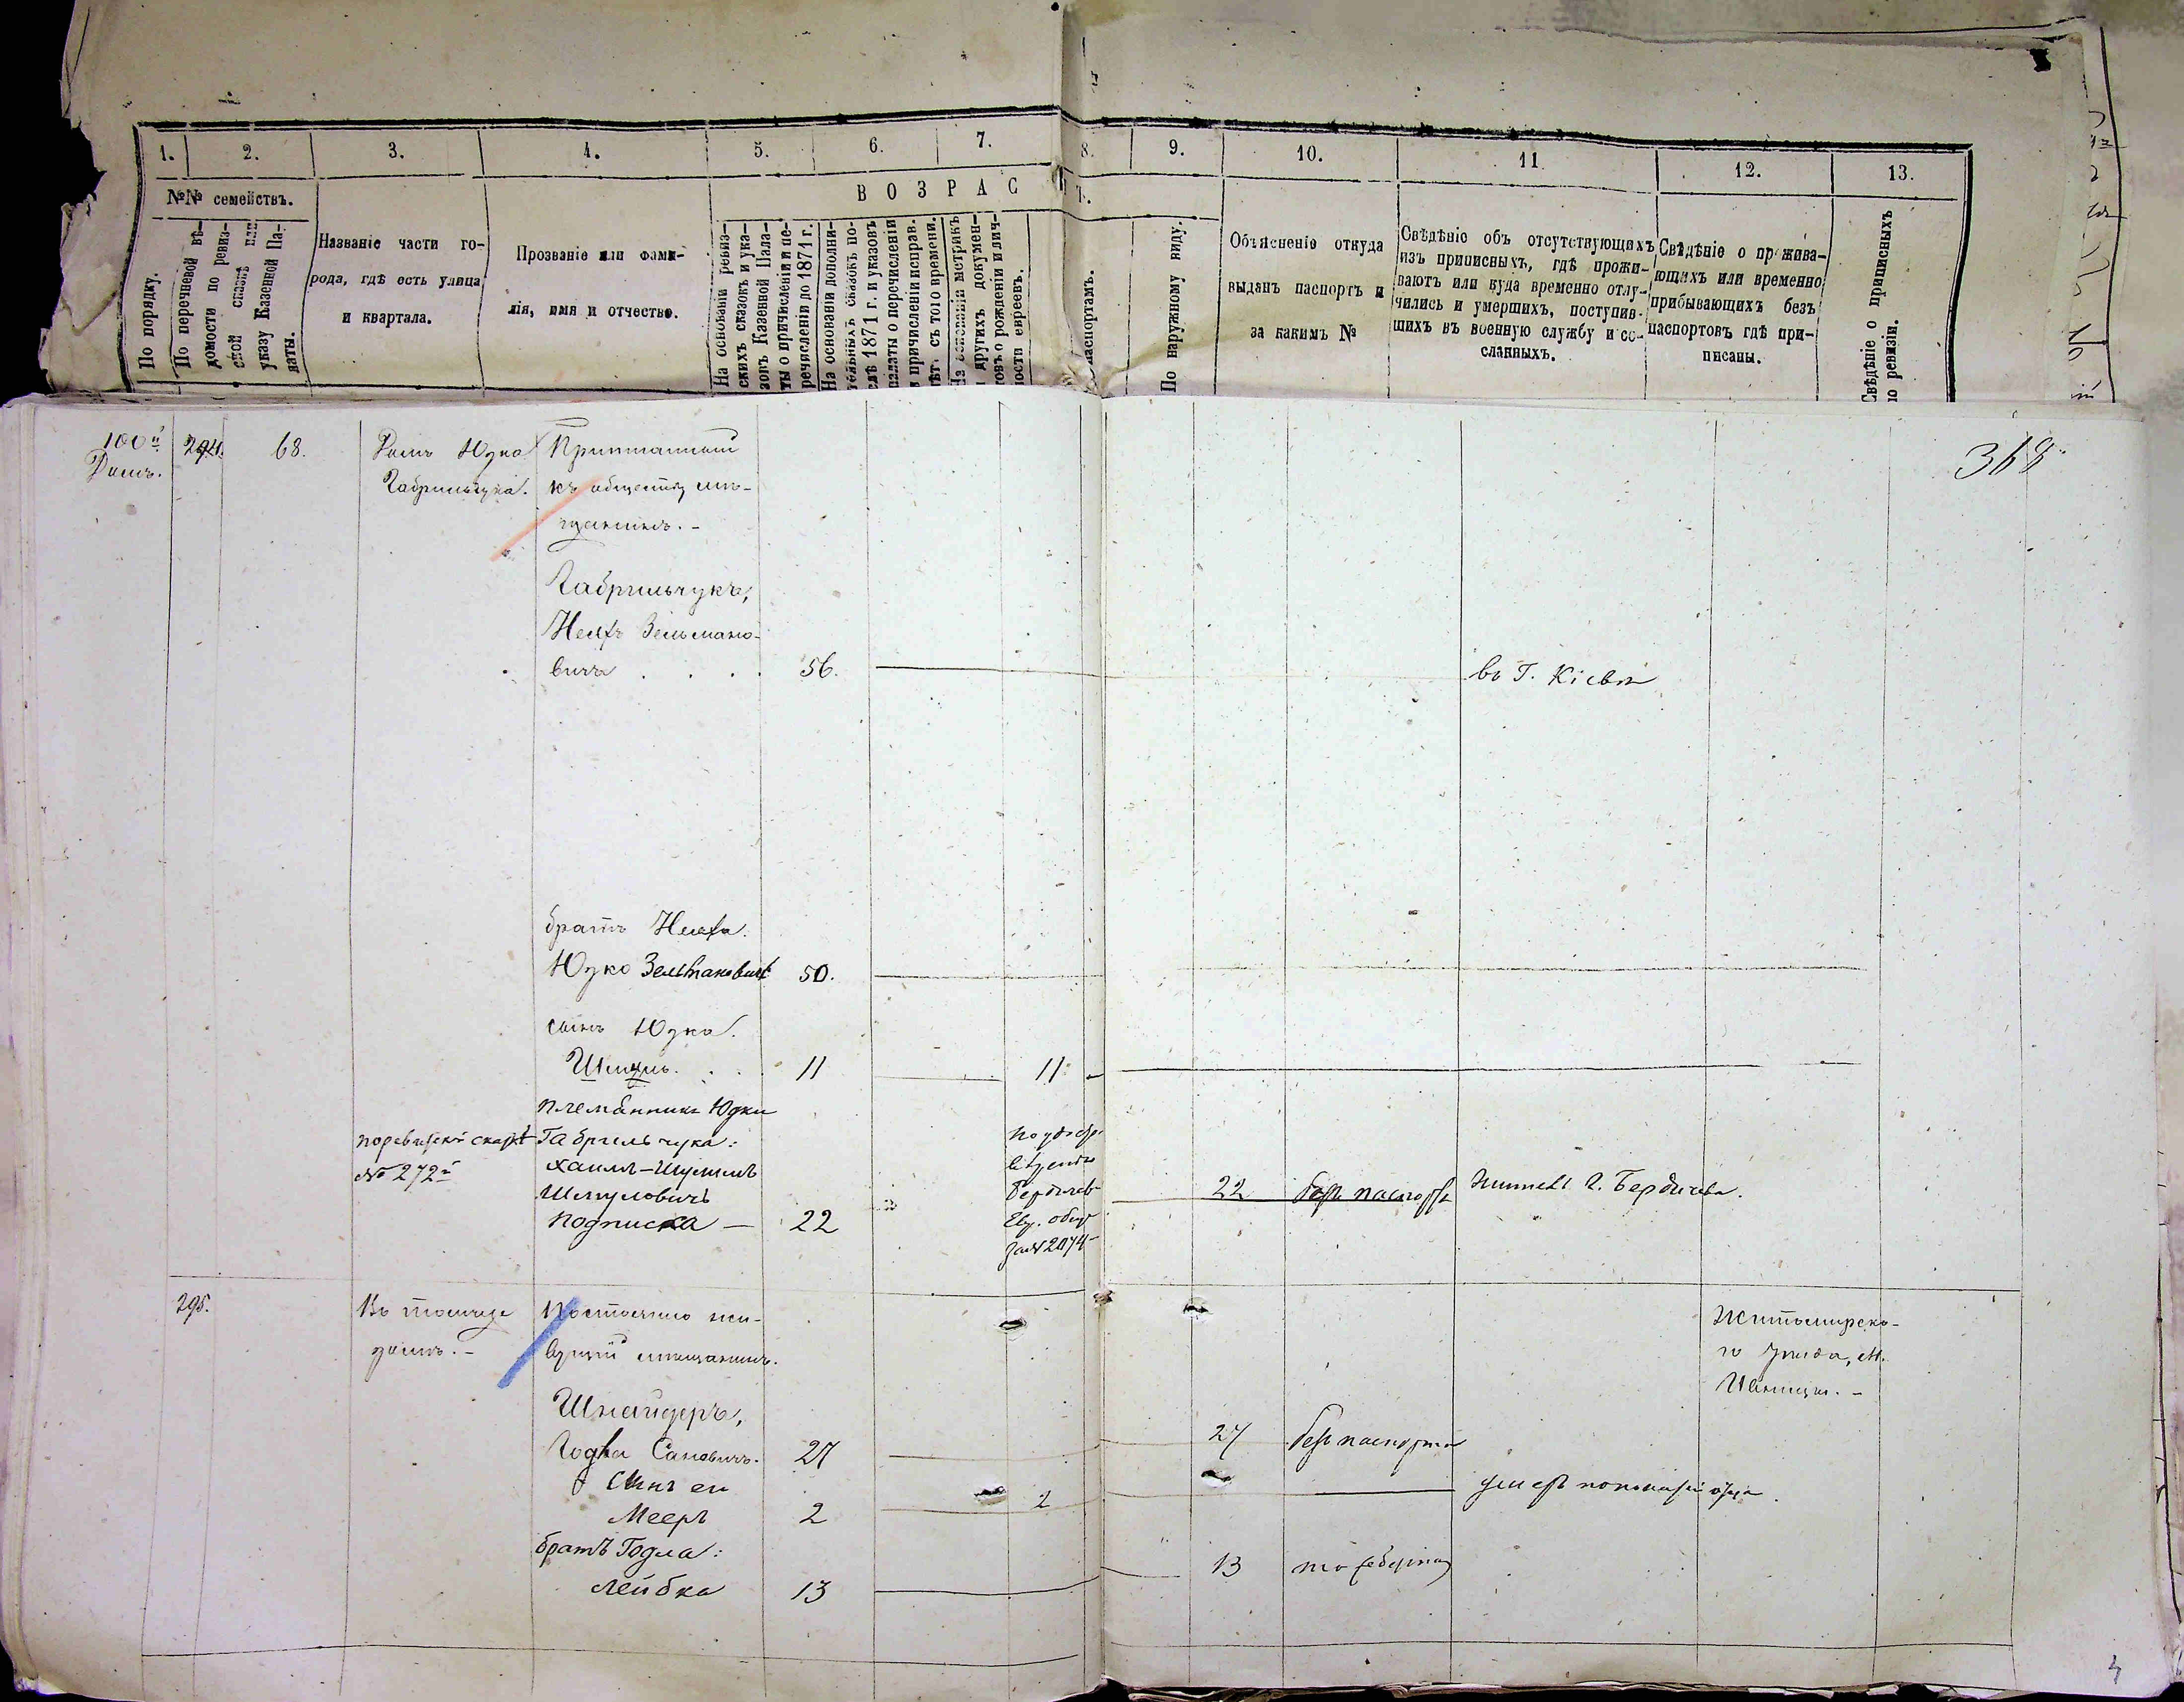 1. 2. 3. 4. 5. 6. 7. 8. 9. 10. 11. 12. 13.
№№ семействъ.
По порядку.
По перечневой вѣ-
домости по ревиз-
ской сказкѣ или
указу Казенной Па-
латы.
Названіе части го-
рода, гдѣ есть улица
и квартала.
Прозваніе или фами-
лія, имя и отчество.
ВОЗРАСТЪ.
На основаніи ревиз-
скихъ сказокъ и ука-
зовъ Казенной Пала-
ты о причисленіи и пе-
речисленіи до 1871 г.
На основаніи дополни-
тельныхъ сказокъ по-
слѣ 1871 г. и указовъ
палаты о перечисленіи
и причисленіи исправ.
лѣтъ съ того времени.
На основаніи метрикъ
и другихъ докумен-
товъ о рожденіи и лич-
ности евреевъ.
паспортамъ.
По наружному виду.
Объясненіе откуда
выданъ паспортъ и
за какимъ №
Свѣдѣніе объ отсутствующихъ
изъ приписныхъ, гдѣ прожи-
ваютъ или куда временно отлу-
чились и умершихъ, поступив-
шихъ въ военную службу и со-
сланныхъ.
Свѣдѣніе о прожива-
ющихъ или временно
прибывающихъ безъ
паспортовъ гдѣ при-
писаны.
Свѣдѣніе о приписныхъ
по ревизіи.
368
100й
Домъ.
294.
68.
Домъ Юдка
Габрильчука.
къ обществу мѣ-
щанинъ.-
Габрильчукъ,
Зельмано-
вичъ . . . 56.
въ Г. Кіевѣ
братъ
Юдко Зельмановичъ 50.
сынъ Юдка.
Шмуль . . 11 11
племянникъ Юдки
Габрильчука:
Хаимъ-Шулимъ
Шмуловичъ
подписка — 22
№ 272й
Бердичев
Евр. общ
за № 2074
22 безъ паспорта
Житель г. Бердичева.
295.
Въ томъ же
домѣ.-
Постоянно жи-
вущій мѣщанинъ.
Шнайдеръ,
27 27 безъ паспорта
Сынъ ея
Мееръ 2 2
братъ Годла:
Лейбка 13 13
Житомирска-
го уѣзда, м.
Ивницы.-